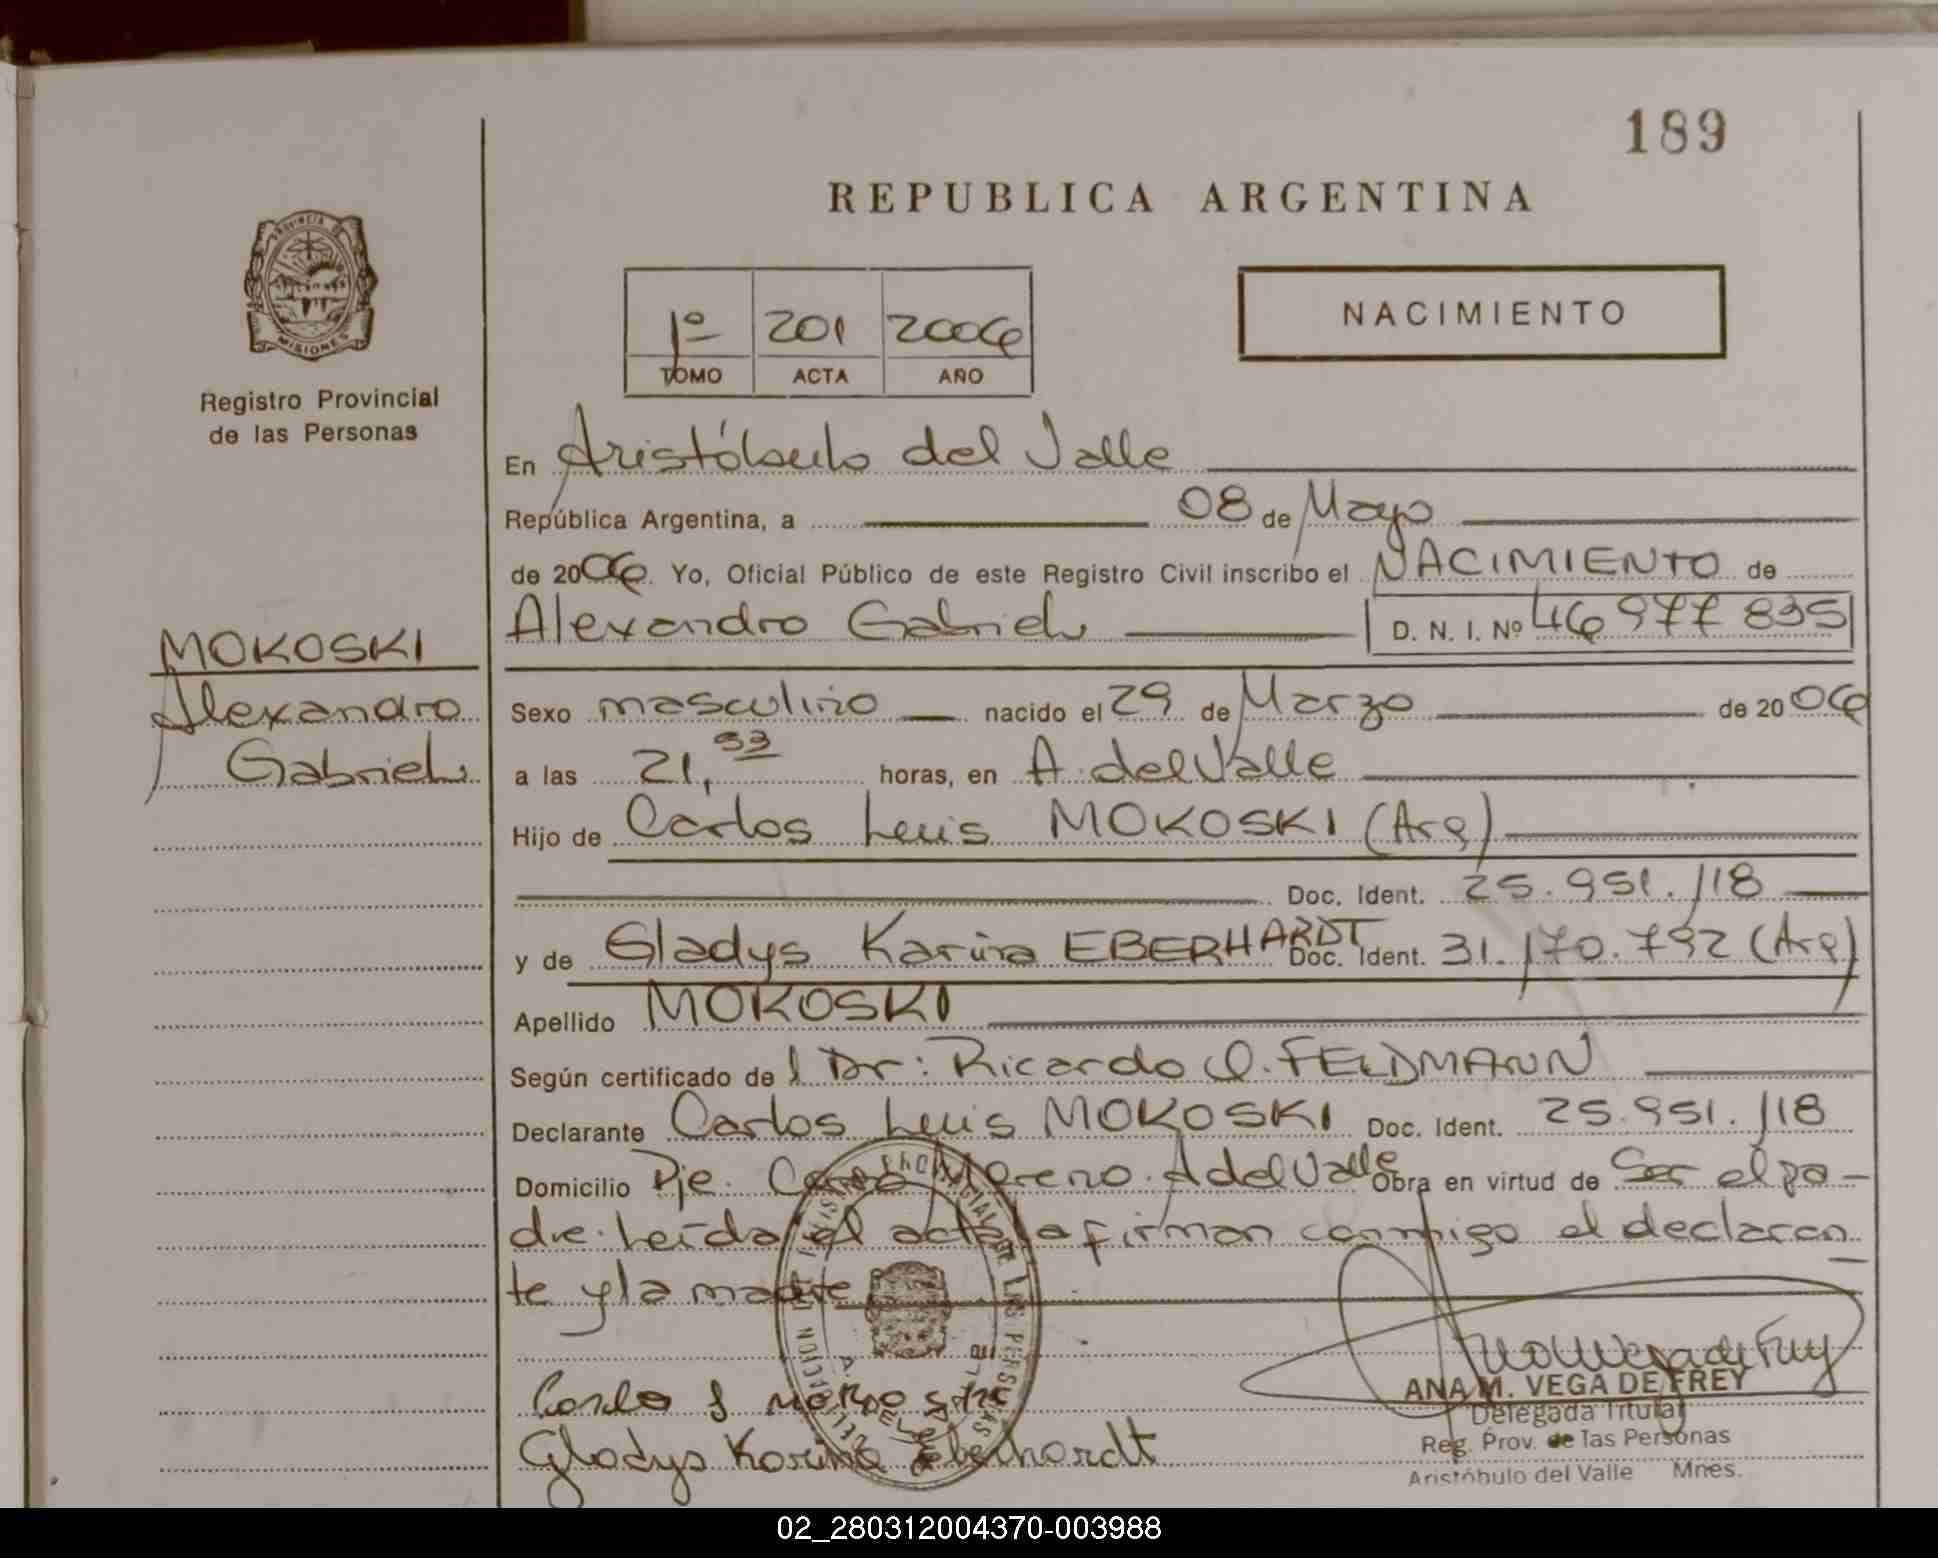 189
REPUBLICA ARGENTINA
PROVINCIA DE
MISIONES
Registro Provincial
de las Personas
NACIMIENTO
1º 201 2006
TOMO ACTA AÑO
En Aristóbulo del Valle
República Argentina, a 08 de Mayo
de 2006. Yo, Oficial Público de este Registro Civil inscribo el NACIMIENTO de
Alexandro Gabriel D. N. I. Nº 46 977 835
MOKOSKI
Alexandro
Gabriel
Sexo masculino nacido el 29 de Marzo de 2006
a las 21, horas, en A. del Valle
Hijo de Carlos Luis MOKOSKI (Arg)
Doc. Ident. 25.951.118
y de Gladys Karina EBERHARDT Doc. Ident. 31.170.792 (Arg)
Apellido MOKOSKI
Según certificado del Dr: Ricardo O. FELDMANN
Declarante Carlos Luis MOKOSKI Doc. Ident. 25.951.118
Domicilio Pje. Moreno. A del Valle Obra en virtud de Ser el pa-
dre. Leída el acta la firman conmigo el declaran
te y la madre
Carlos L Mokoski
Gladys Karina Eberhardt
ANA M. VEGA DE FREY
Delegada Titular
Reg. Prov. de las Personas
Aristóbulo del Valle Mnes.
02_280312004370-003988